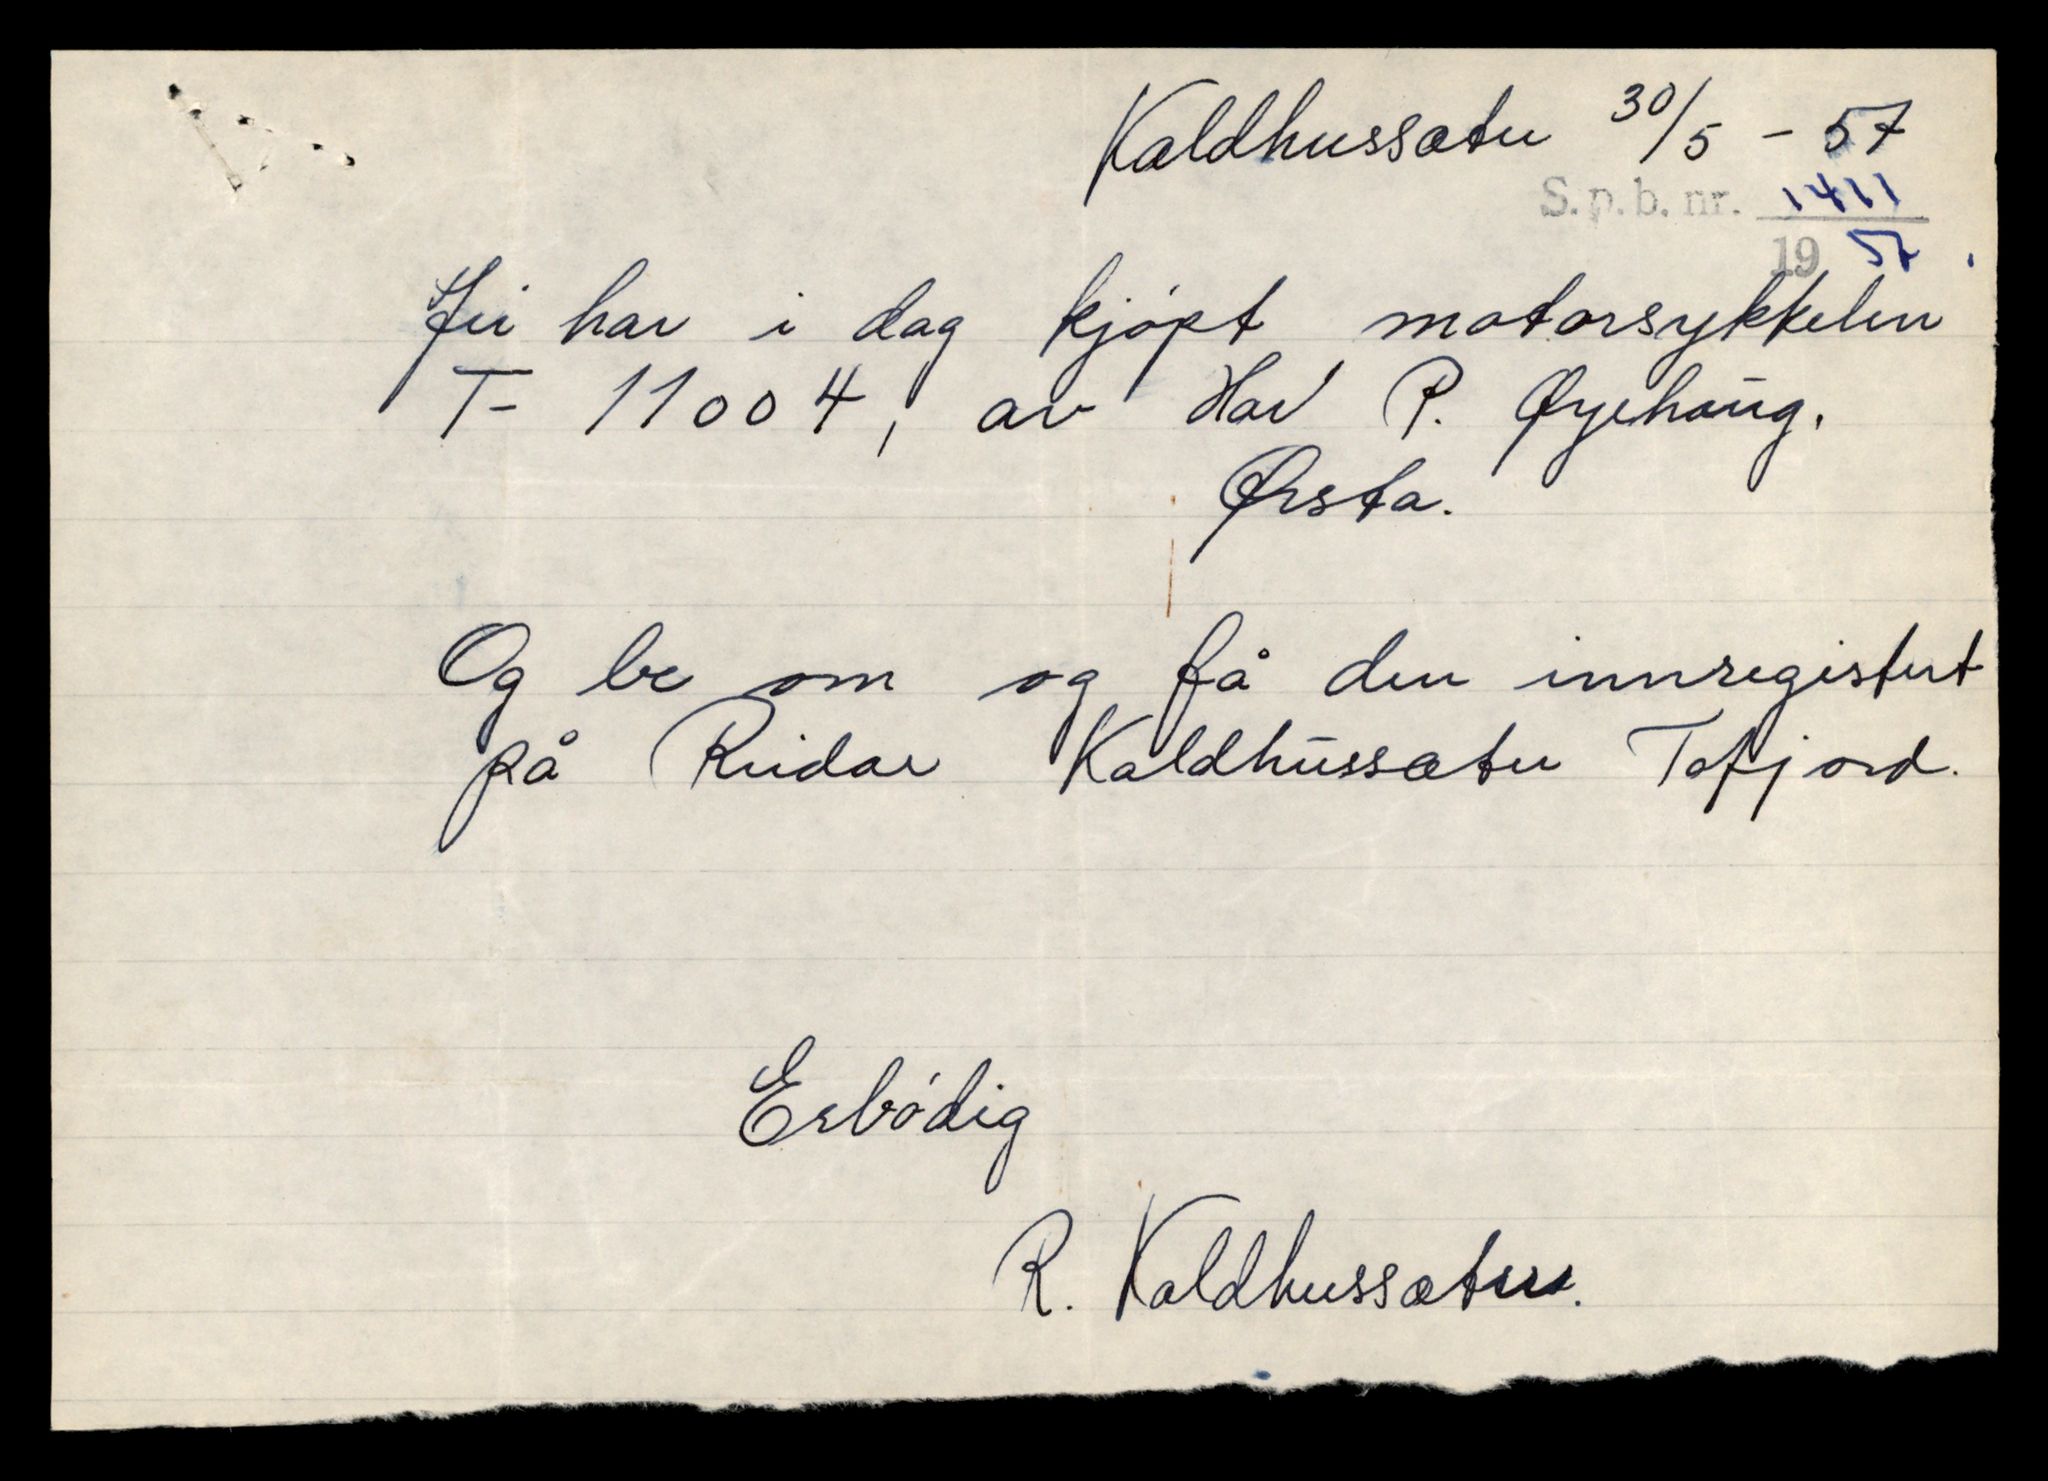 Kaldhussæter 30/5 - 57
S.p.b. nr. 1411
19 57.
Jei har i dag kjøpt motorsykkelen
T- 11004, av P. Øyehaug.
Ørsta.
Og be om og få den innregistert
på Reidar Kaldhussæter Tafjord.
Erbødig
R. Kaldhussæter.